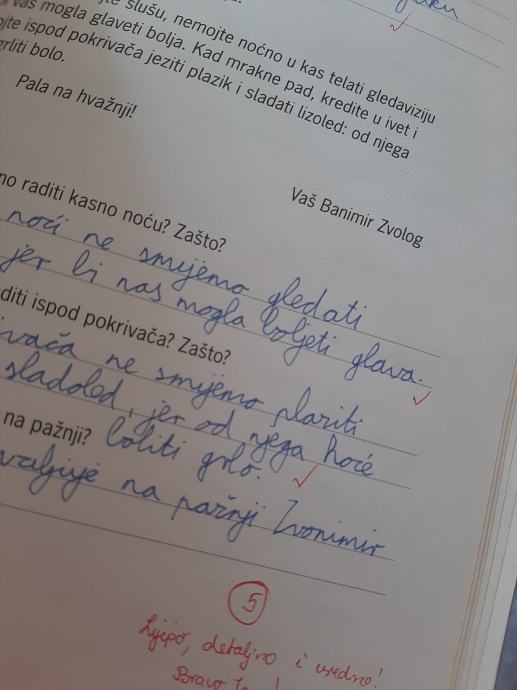 slušu, nemojte noćno u kas telati gledaviziju
vas mogla glaveti bolja. Kad mrakne pad, kredite u ivet i
ispod pokrivača jeziti plazik i sladati lizoled: od njega
bolo.
Pala na hvažnji!
Vaš Banimir Zvolog
raditi kasno noću? Zašto?
noći ne smijemo gledati
jer bi nas mogla boljeti glava.
ispod pokrivača? Zašto?
ne smijemo plaziti
sladoled, jer od njega hoće
na pažnji? boliti grlo.
na pažnji Zvonimir
5
Lijepo, detaljno i uredno!
Bravo